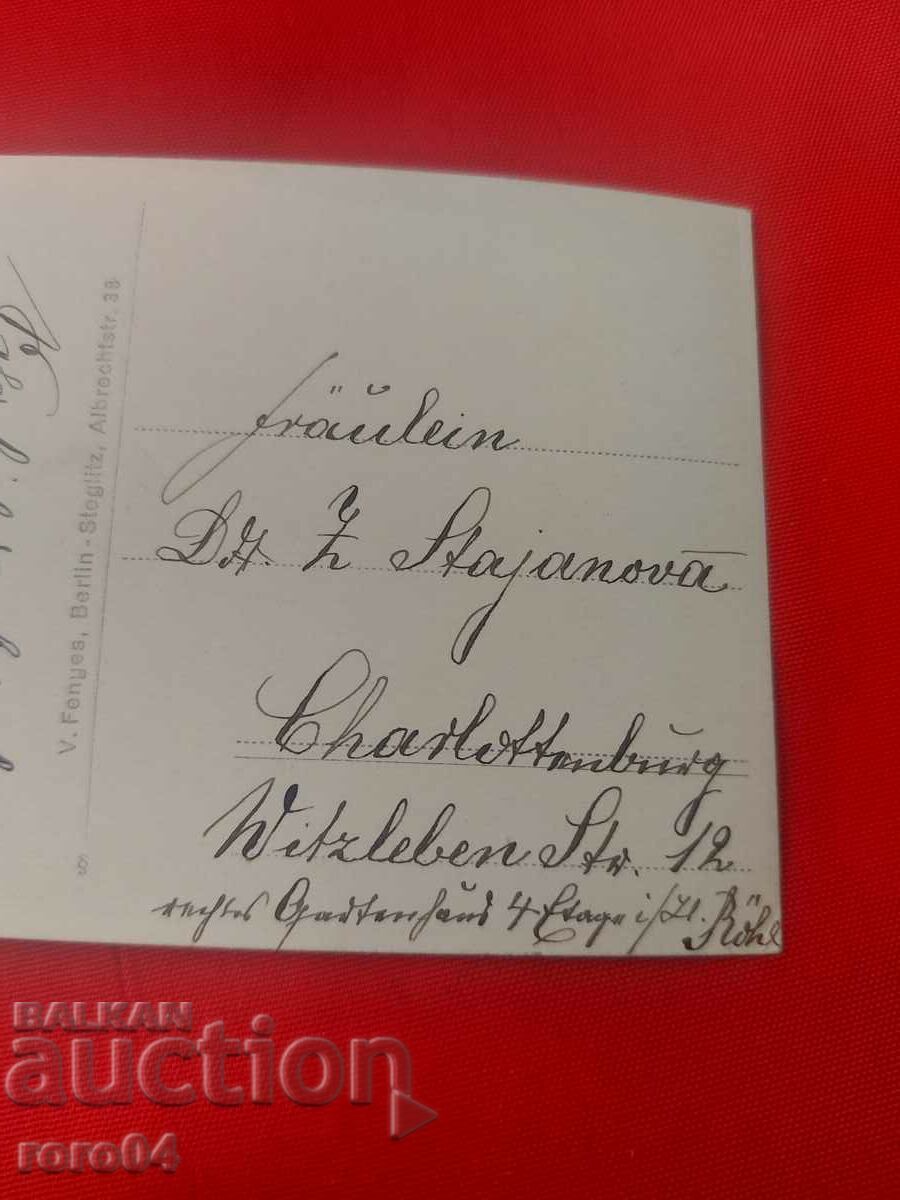 V. Fenyes, Berlin - Steglitz, Albrechtstr. 38
Fräulein
Dr. Z Stajanova
Charlottenburg
Witzleben Str. 12
rechtes Gartenhaus 4 Etage Röhl
BALKAN
auction
roro04